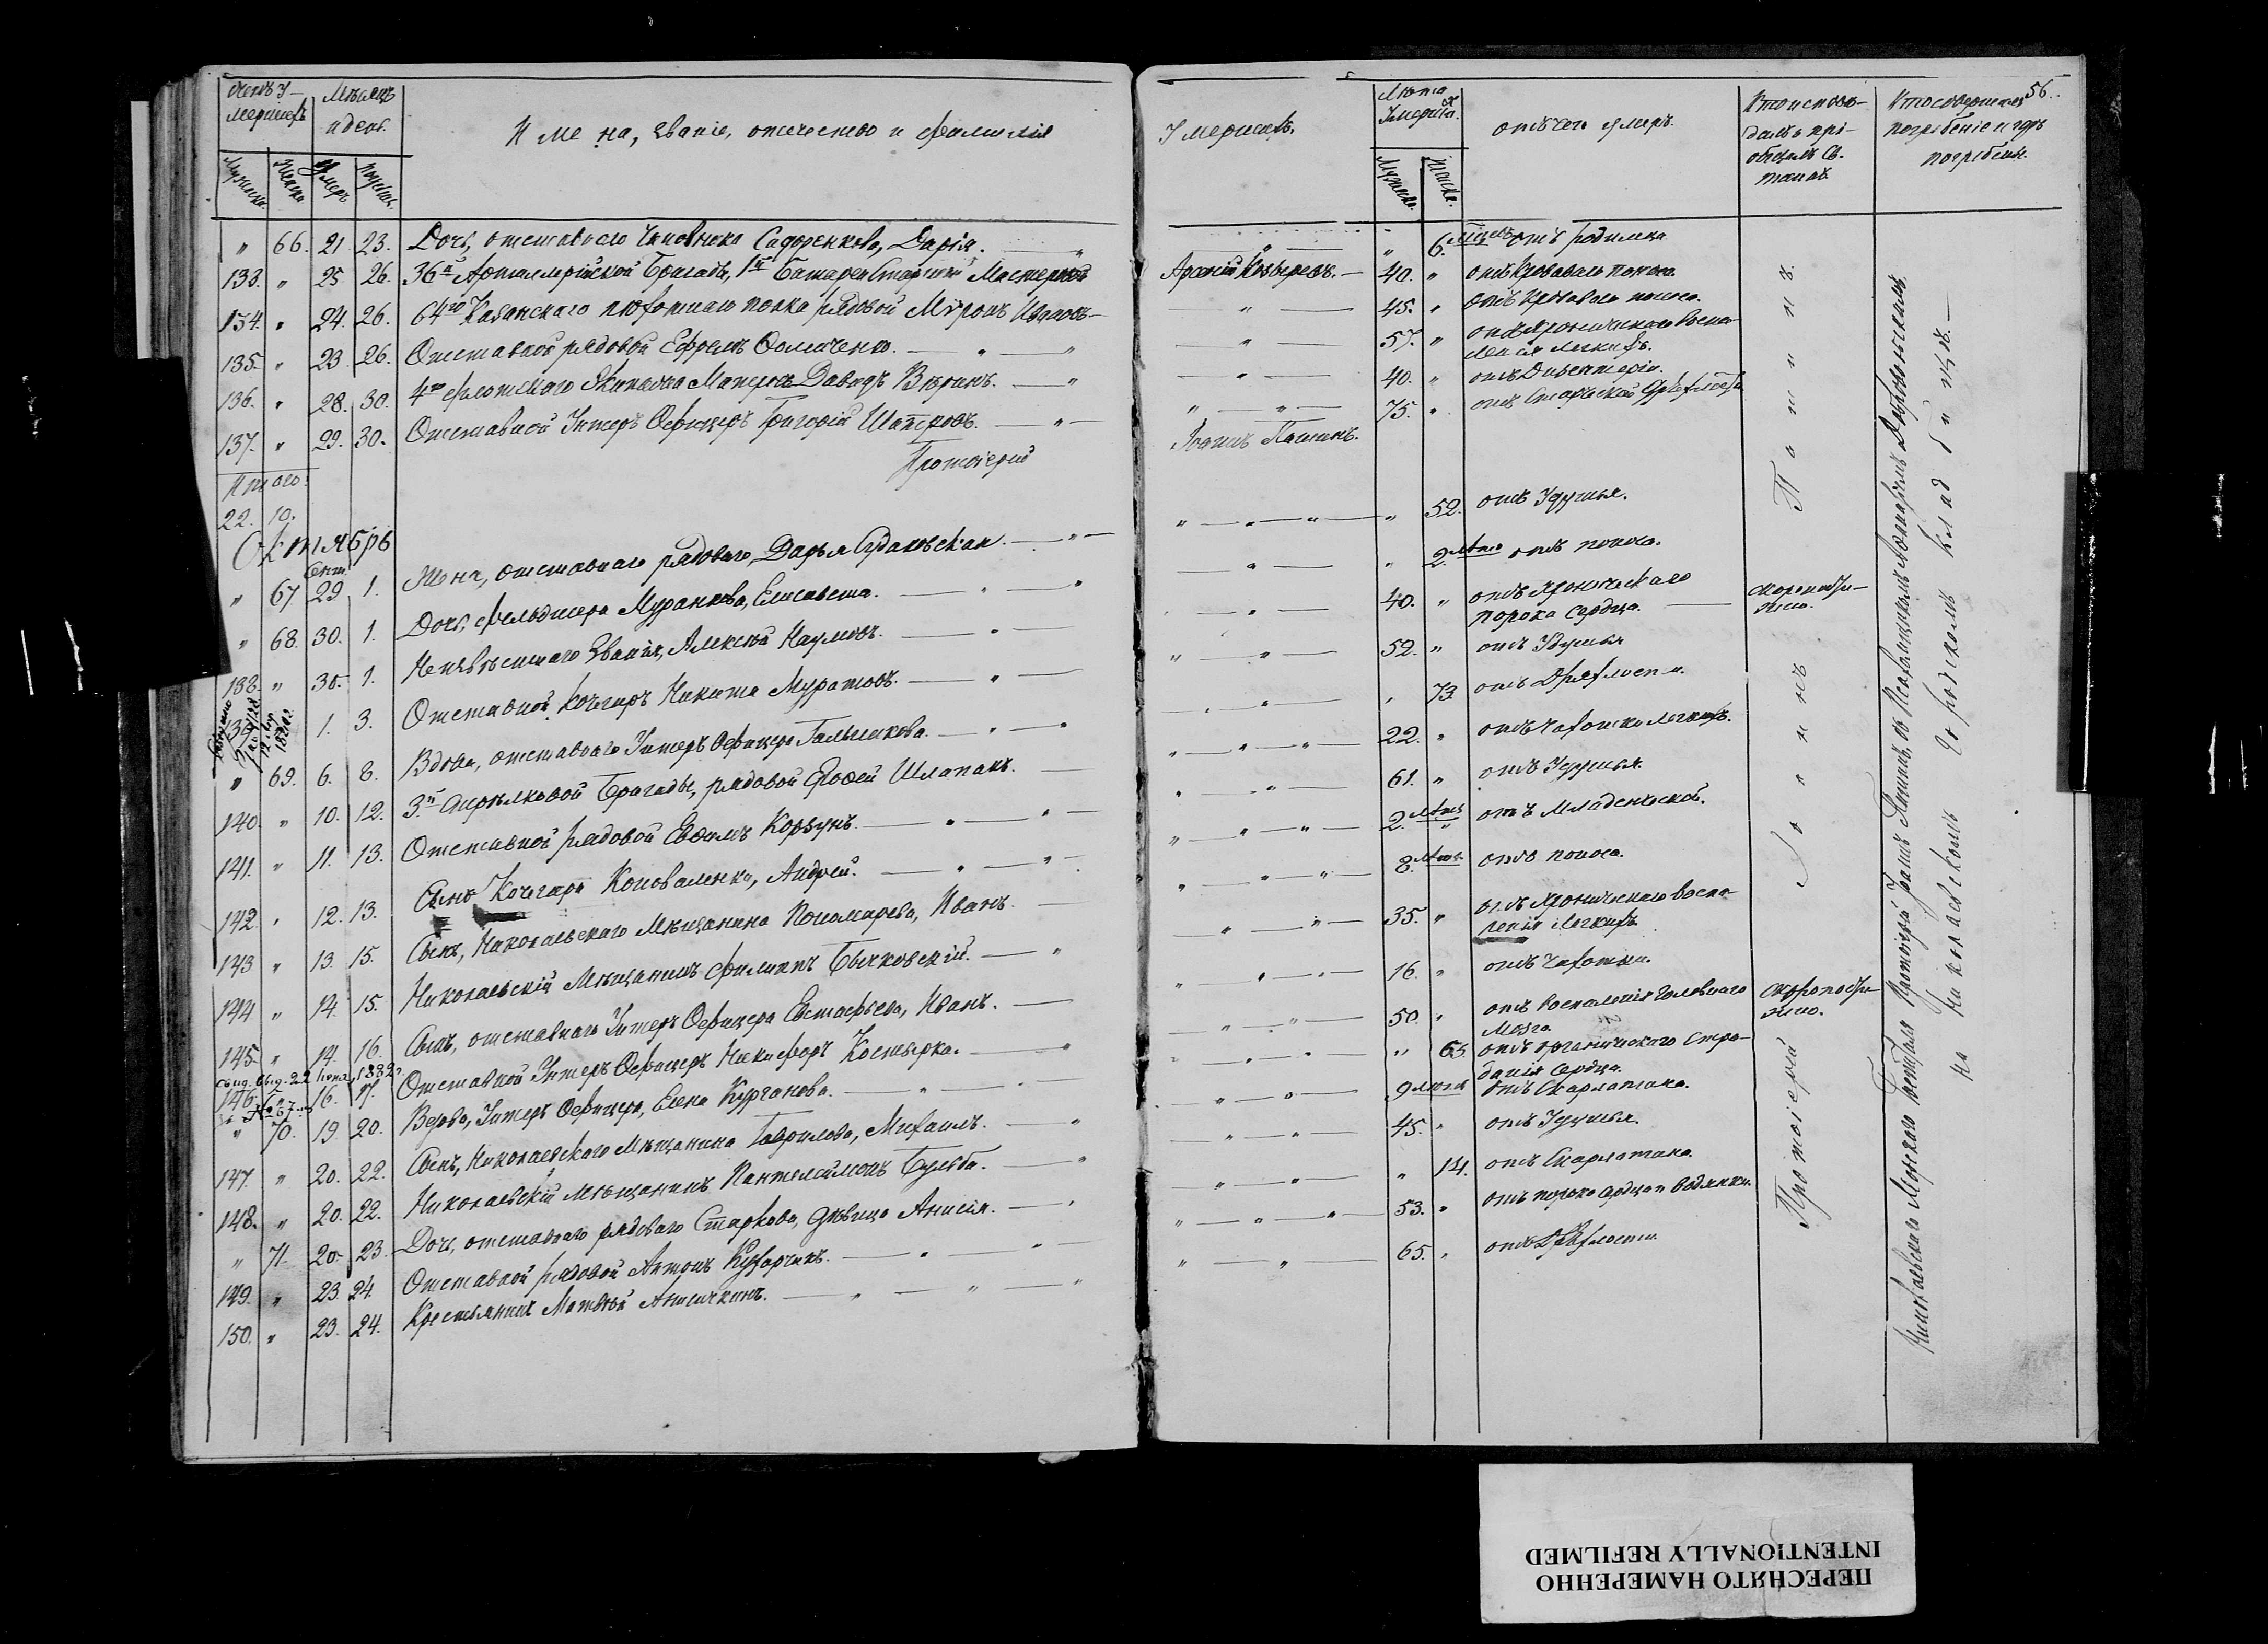 Счетъ у-
мершихъ
Мѣсяцъ
и день.
Имена, званіе, отечество и фамилія
Мужеска.
Женска
Умеръ
Погребенъ.
" 66. 21 23. Дочь, отставного Чиновника Сидоренкова, Дарія.
133. " 25 26. 36й Артиллерійской Бригады, 1й Батареи Старшій Мастеровой
134. " 24. 26. 64го Казанскаго пѣхотнаго полка рядовой Мѵронъ Ивановъ
135. " 23 26. Отставной рядовой Ефремъ
136. " 28. 30. 4го флотскаго Экипажа Матросъ Давидъ
137. " 29. 30. Отставной Унтеръ Офицеръ Григорій
Протоіерей
Итого.
22. 10.
Октябрь
Сент.
" 67 29 1. Жена, отставнаго рядоваго, Дарья
" 68. 30. 1. Дочь, фельдшера Муранкова, Елисавета.
138. " 30. 1. Неизвѣстнаго званія, Алексѣй Наумовъ.
139 1. 3. Отставной Кочегаръ Никита Муратовъ.
" 69. 6. 8. Вдова, отставнаго Унтеръ Офицера
140. " 10. 12. 3й Стрѣлковой Бригады, рядовой Ерофей Шлапакъ.
141. " 11. 13. Отставной рядовой Евфимъ Корзунъ.
142. " 12. 13. Сынъ Кочегара Коноваленка, Андрей.
143. " 13. 15. Сынъ, Николаевскаго Мѣщанина Пономарева, Иванъ.
144. " 14. 15. Николаевскій Мѣщанинъ Филиппъ Бычковскій.
145. " 14. 16. Сынъ, отставнаго Унтеръ Офицера Евстафьева, Иванъ.
146. " 16. 17. Отставной Унтеръ Офицеръ Никифоръ Костырка.
" 70. 19. 20. Вдова, Унтеръ Офицера, Елена Курганова.
147. " 20. 22. Сынъ, Николаевскаго Мѣщанина Гаврилова, Михаилъ.
148. " 20. 22. Николаевскій Мѣщанинъ Пантелеимонъ Бульба.
" 71. 20. 23. Дочь, отставнаго рядоваго Старкова, дѣвица Анисія.
149. " 23 24. Отставной рядовой Антонъ Кухарчикъ.
150. " 23. 24. Крестьянинъ Матвѣй
56.
Умершихъ.
Лѣта
Умершаго.
Мужеска.
Женска.
отъ чего умеръ.
Кто исповѣ-
далъ и прі-
общалъ Св.
таинъ.
Кто совершалъ
погребеніе и гдѣ
погребены.
" 6. мѣс. отъ родимца
Арсеній Козыревъ. 40. " отъ Кроваваго поноса.
45. " отъ Кроваваго поноса.
57. " отъ Хроническаго воспа-
ленія легкихъ.
40. " отъ Дизентеріи.
75. " отъ Старческой Дряхлости
Іоаннъ Паннинъ.
" 52. отъ Удушья.
" 2. лѣтъ отъ поноса.
40. " отъ Хроническаго
порока сердца.
скоропости-
жно.
52. " отъ Удушья
" 73. отъ Дряхлости.
22. " отъ Чахотки легкихъ.
61. " отъ Удушья.
2. лѣтъ отъ Младенческой.
8. отъ поноса.
35. " отъ Хроническаго воспа-
ленія Легкихъ
16. " отъ Чахотки.
50. " отъ воспаленія головнаго
мозга.
скоропости-
жно.
" 63. отъ органическаго стра-
данія сердца.
9 лѣтъ отъ Скарлатина.
45. " отъ Удушья.
" 14. отъ Скарлатина.
53. " отъ порока сердца и водянки.
65. " отъ Дряхлости.
Протоіерей Іоаннъ Паннинъ.
Николаевскаго Морского Протоіерей Іоаннъ Паннинъ, съ
на Николаевскомъ Городскомъ кладбищѣ.
ПЕРЕСНЯТО НАМЕРЕННО
INTENTIONALLY REFILMED